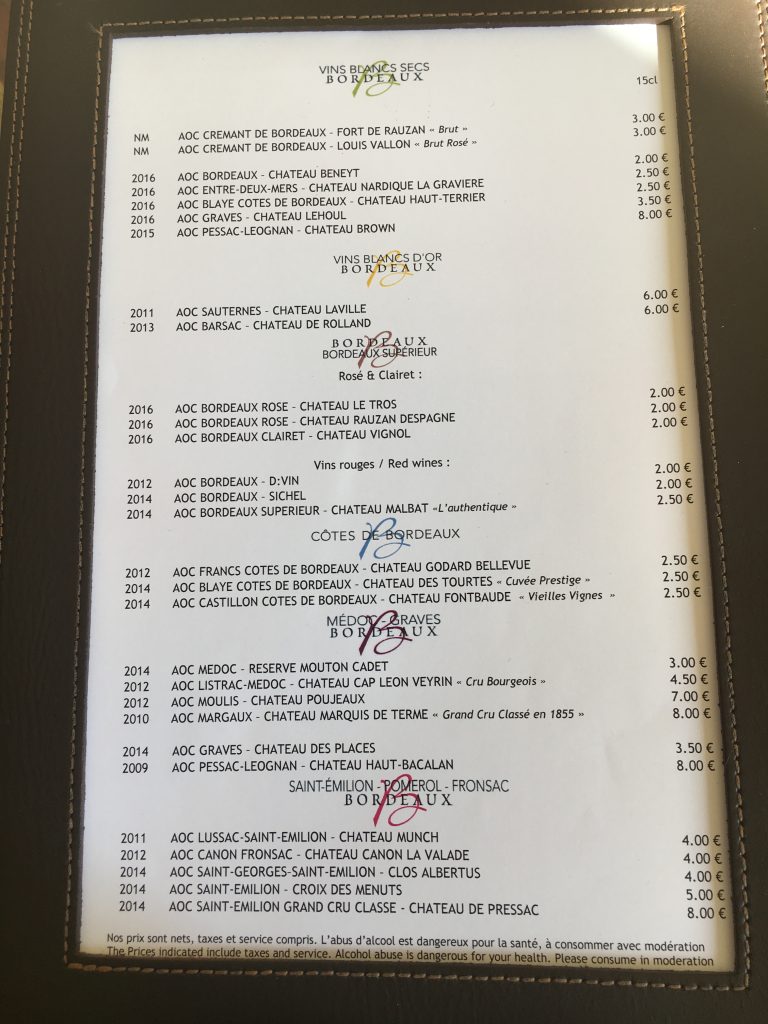 VINS BLANCS SECS
BORDEAUX
15cl
NM AOC CREMANT DE BORDEAUX - FORT DE RAUZAN « Brut » 3.00 €
NM AOC CREMANT DE BORDEAUX - LOUIS VALLON « Brut Rosé » 3.00 €
2016 AOC BORDEAUX - CHATEAU BENEYT 2.00 €
2016 AOC ENTRE-DEUX-MERS - CHATEAU NARDIQUE LA GRAVIERE 2.50 €
2016 AOC BLAYE COTES DE BORDEAUX - CHATEAU HAUT-TERRIER 2.50 €
2016 AOC GRAVES - CHATEAU LEHOUL 3.50 €
2015 AOC PESSAC-LEOGNAN - CHATEAU BROWN 8.00 €
VINS BLANCS D'OR
BORDEAUX
2011 AOC SAUTERNES - CHATEAU LAVILLE 6.00 €
2013 AOC BARSAC - CHATEAU DE ROLLAND 6.00 €
BORDEAUX
BORDEAUX SUPÉRIEUR
Rosé & Clairet :
2016 AOC BORDEAUX ROSE - CHATEAU LE TROS 2.00 €
2016 AOC BORDEAUX ROSE - CHATEAU RAUZAN DESPAGNE 2.00 €
2016 AOC BORDEAUX CLAIRET - CHATEAU VIGNOL 2.00 €
Vins rouges / Red wines :
2012 AOC BORDEAUX - D:VIN 2.00 €
2014 AOC BORDEAUX - SICHEL 2.00 €
2014 AOC BORDEAUX SUPERIEUR - CHATEAU MALBAT «L'authentique » 2.50 €
CÔTES DE BORDEAUX
2012 AOC FRANCS COTES DE BORDEAUX - CHATEAU GODARD BELLEVUE 2.50 €
2014 AOC BLAYE COTES DE BORDEAUX - CHATEAU DES TOURTES « Cuvée Prestige » 2.50 €
2014 AOC CASTILLON COTES DE BORDEAUX - CHATEAU FONTBAUDE « Vieilles Vignes » 2.50 €
MÉDOC - GRAVES
BORDEAUX
2014 AOC MEDOC - RESERVE MOUTON CADET 3.00 €
2012 AOC LISTRAC-MEDOC - CHATEAU CAP LEON VEYRIN « Cru Bourgeois » 4.50 €
2012 AOC MOULIS - CHATEAU POUJEAUX 7.00 €
2010 AOC MARGAUX - CHATEAU MARQUIS DE TERME « Grand Cru Classé en 1855 » 8.00 €
2014 AOC GRAVES - CHATEAU DES PLACES 3.50 €
2009 AOC PESSAC-LEOGNAN - CHATEAU HAUT-BACALAN 8.00 €
SAINT-ÉMILION - POMEROL - FRONSAC
BORDEAUX
2011 AOC LUSSAC-SAINT-EMILION - CHATEAU MUNCH 4.00 €
2012 AOC CANON FRONSAC - CHATEAU CANON LA VALADE 4.00 €
2014 AOC SAINT-GEORGES-SAINT-EMILION - CLOS ALBERTUS 4.00 €
2014 AOC SAINT-EMILION - CROIX DES MENUTS 5.00 €
2014 AOC SAINT-EMILION GRAND CRU CLASSE - CHATEAU DE PRESSAC 8.00 €
Nos prix sont nets, taxes et service compris. L'abus d'alcool est dangereux pour la santé, à consommer avec modération
The Prices indicated include taxes and service. Alcohol abuse is dangerous for your health. Please consume in moderation